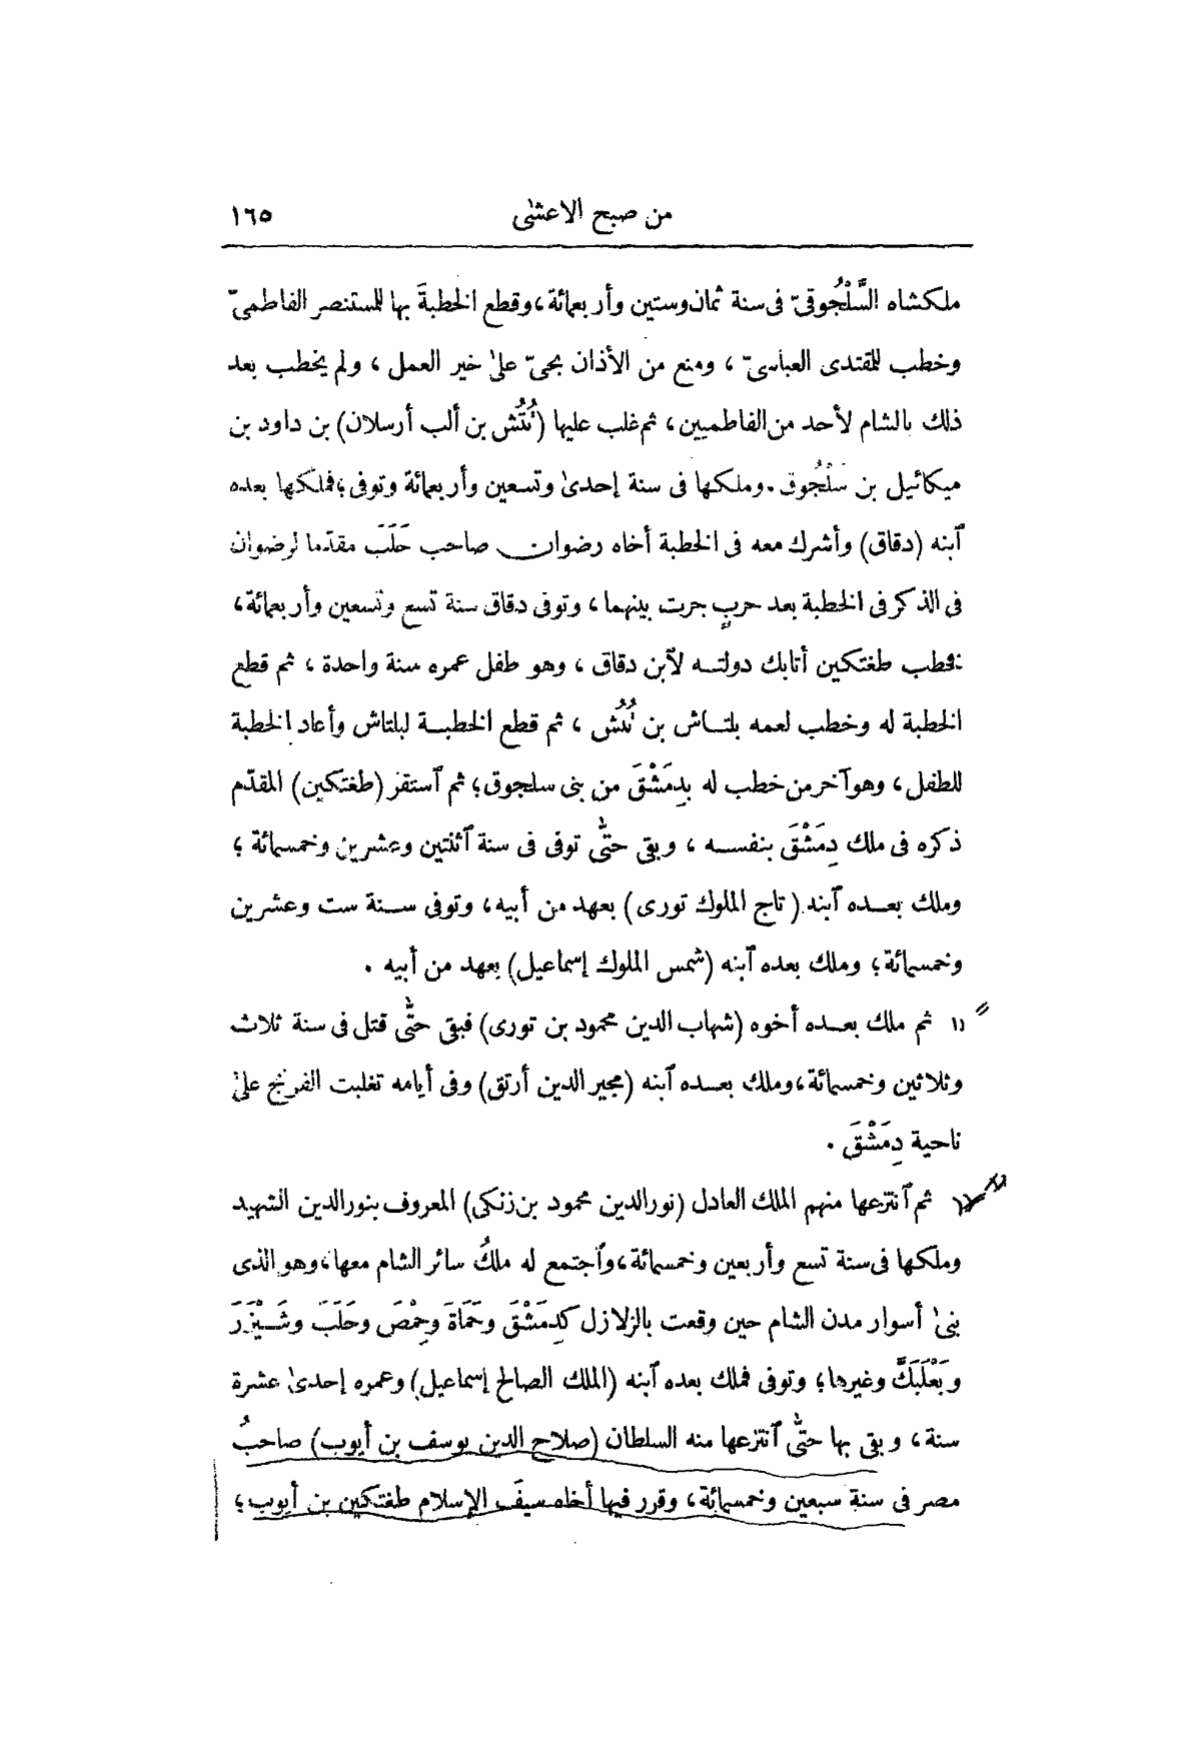 من صبح الاعشىٰ ١٦٥
ملكشاه السَّلْجُوقىّ فى سنة ثمان وستين وأربعمائة، وقطع الخطبةَ بها للمستنصر الفاطمىّ
وخطب للمقتدى العباسىّ ، ومنع من الأذان بحىّ علىٰ خير العمل ، ولم يخطب بعد
ذلك بالشام لأحد من الفاطميين، ثم غلب عليها (تُتُش بن ألب أرسلان) بن داود بن
ميكائيل بن سَلْجُوق . وملكها فى سنة إحدىٰ وتسعين وأربعمائة وتوفى؛ فملكها بعده
ٱبنه (دقاق) وأشرك معه فى الخطبة أخاه رضوان صاحب حَلَبَ مقدّما لرضوان
فى الذكر فى الخطبة بعد حربٍ جرت بينهما، وتوفى دقاق سنة تسع وتسعين وأربعمائة،
فخطب طغتكين أتابك دولته لٱبن دقاق ، وهو طفل عمره سنة واحدة ، ثم قطع
الخطبة له وخطب لعمه بلتاش بن تُتُش ، ثم قطع الخطبة لبلتاش وأعاد الخطبة
للطفل، وهو آخر من خطب له بدِمَشْقَ من بنى سلجوق؛ ثم ٱستقرّ (طغتكين) المقدّم
ذكره فى ملك دِمَشْقَ بنفسه ، وبقى حتّٰى توفى فى سنة ٱثنتين وعشرين وخمسمائة ؛
وملك بعده ٱبنه (تاج الملوك تورى) بعهد من أبيه، وتوفى سنة ست وعشرين
وخمسمائة؛ وملك بعده ٱبنه (شمس الملوك إسماعيل) بعهد من أبيه .
ثم ملك بعده أخوه (شهاب الدين محمود بن تورى) فبقى حتّٰى قتل فى سنة ثلاث
وثلاثين وخمسمائة، وملك بعده ٱبنه (مجير الدين أرتق) وفى أيامه تغلبت الفرنج علىٰ
ناحية دِمَشْقَ .
ثم ٱنتزعها منهم الملك العادل (نور الدين محمود بن زنكى) المعروف بنور الدين الشهيد
وملكها فى سنة تسع وأربعين وخمسمائة، وٱجتمع له ملكُ سائر الشام معها، وهو الذى
بنىٰ أسوار مدن الشام حين وقعت بالزلازل كدِمَشْقَ وحَمَاةَ وحِمْصَ وحَلَبَ وشَيْزَرَ
وبَعْلَبَكَّ وغيرها؛ وتوفى فملك بعده ٱبنه (الملك الصالح إسماعيل) وعمره إحدىٰ عشرة
سنة، وبقى بها حتّٰى ٱنتزعها منه السلطان (صلاح الدين يوسف بن أيوب) صاحبُ
مصر فى سنة سبعين وخمسمائة، وقرر فيها أخاه سيفَ الإسلام طغتكين بن أيوب؛